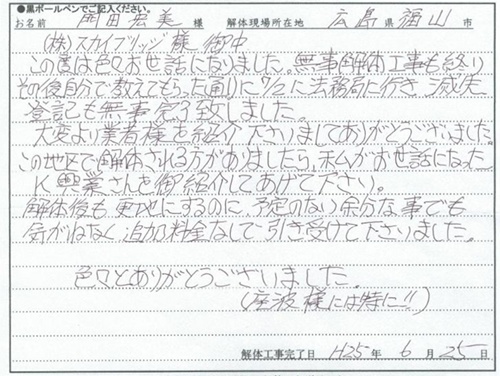 ●黒ボールペンでご記入ください。
お名前 岡田宏美 様 解体現場所在地 広島 県 福山 市
(株)スカイブリッジ様 御中
この度は色々お世話になりました。無事解体工事も終り
その後自分で教えてもらった通りに7/2に法務局に行き 滅失
登記も無事完了致しました。
大変より業者様を紹介下さいましてありがとうございました。
この地区で解体される方がありましたら、私がお世話になった
K興業さんを御紹介してあげて下さい。
解体後も更地にするのに、予定のない余分な事でも
気がねなく追加料金なしで引き受けて下さいました。
色々とありがとうございました。
(座波様には特に!!)
解体工事完了日 H25 年 6 月 25 日